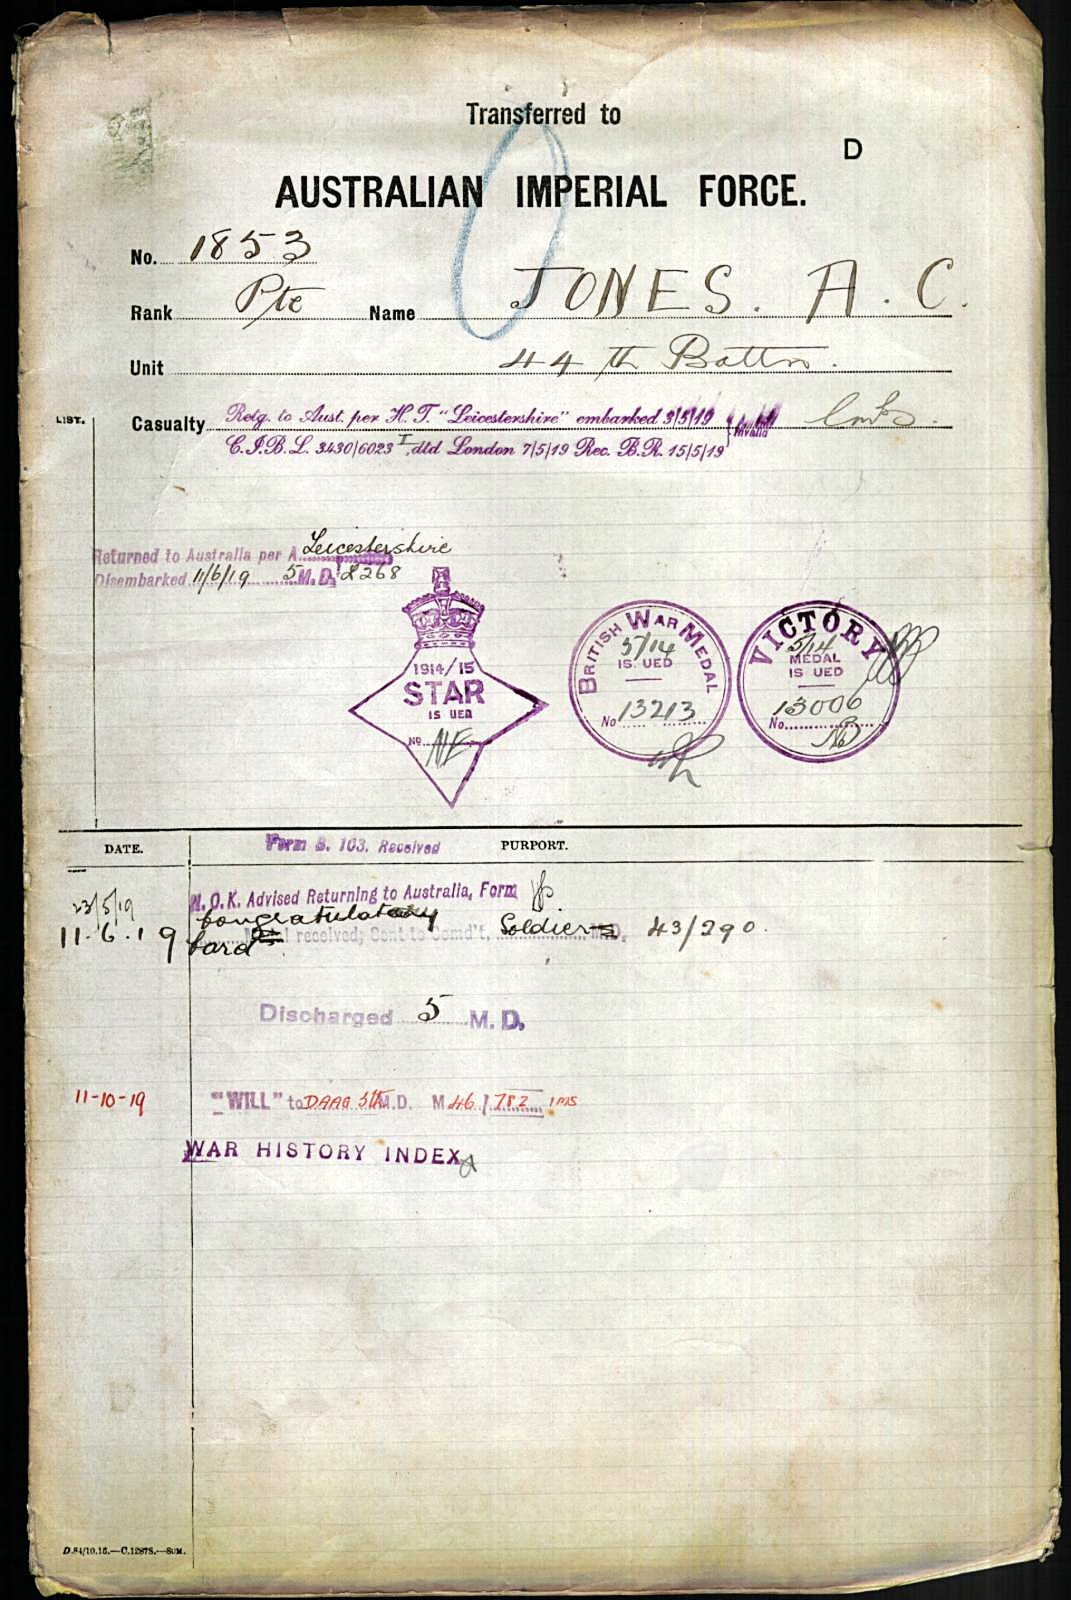 Transferred to
D
AUSTRALIAN IMPERIAL FORCE.
No. 1853
Rank Pte Name JONES. A. C.
Unit 44 th Battn.
LIST.
Casualty Retg. to Aust. per H.T. "Leicestershire" embarked 3/5/19 Invalid
C.I.B.L. 3430/6023 I, dtd London 7/5/19 Rec. B.R. 15/5/19
Returned to Australia per A Leicestershire
Disembarked 11/6/19 5 M.D. 268
1914/15
STAR
IS UED
No NE
BRITISH WAR MEDAL
5/14
IS UED
No 13213
VICTORY
5/14
MEDAL
IS UED
No. 13006
DATE. Form B. 103. Received PURPORT.
23/5/19 N.O.K. Advised Returning to Australia, Form
Congratulatory
11.6.19 Card received; Sent to Comd't. Soldier M.D. 43/290.
Discharged 5 M.D.
11-10-19 "WILL" to DAAG 5th M.D. M 46/782
WAR HISTORY INDEX
D.84/10.16.—C.12878.—50M.